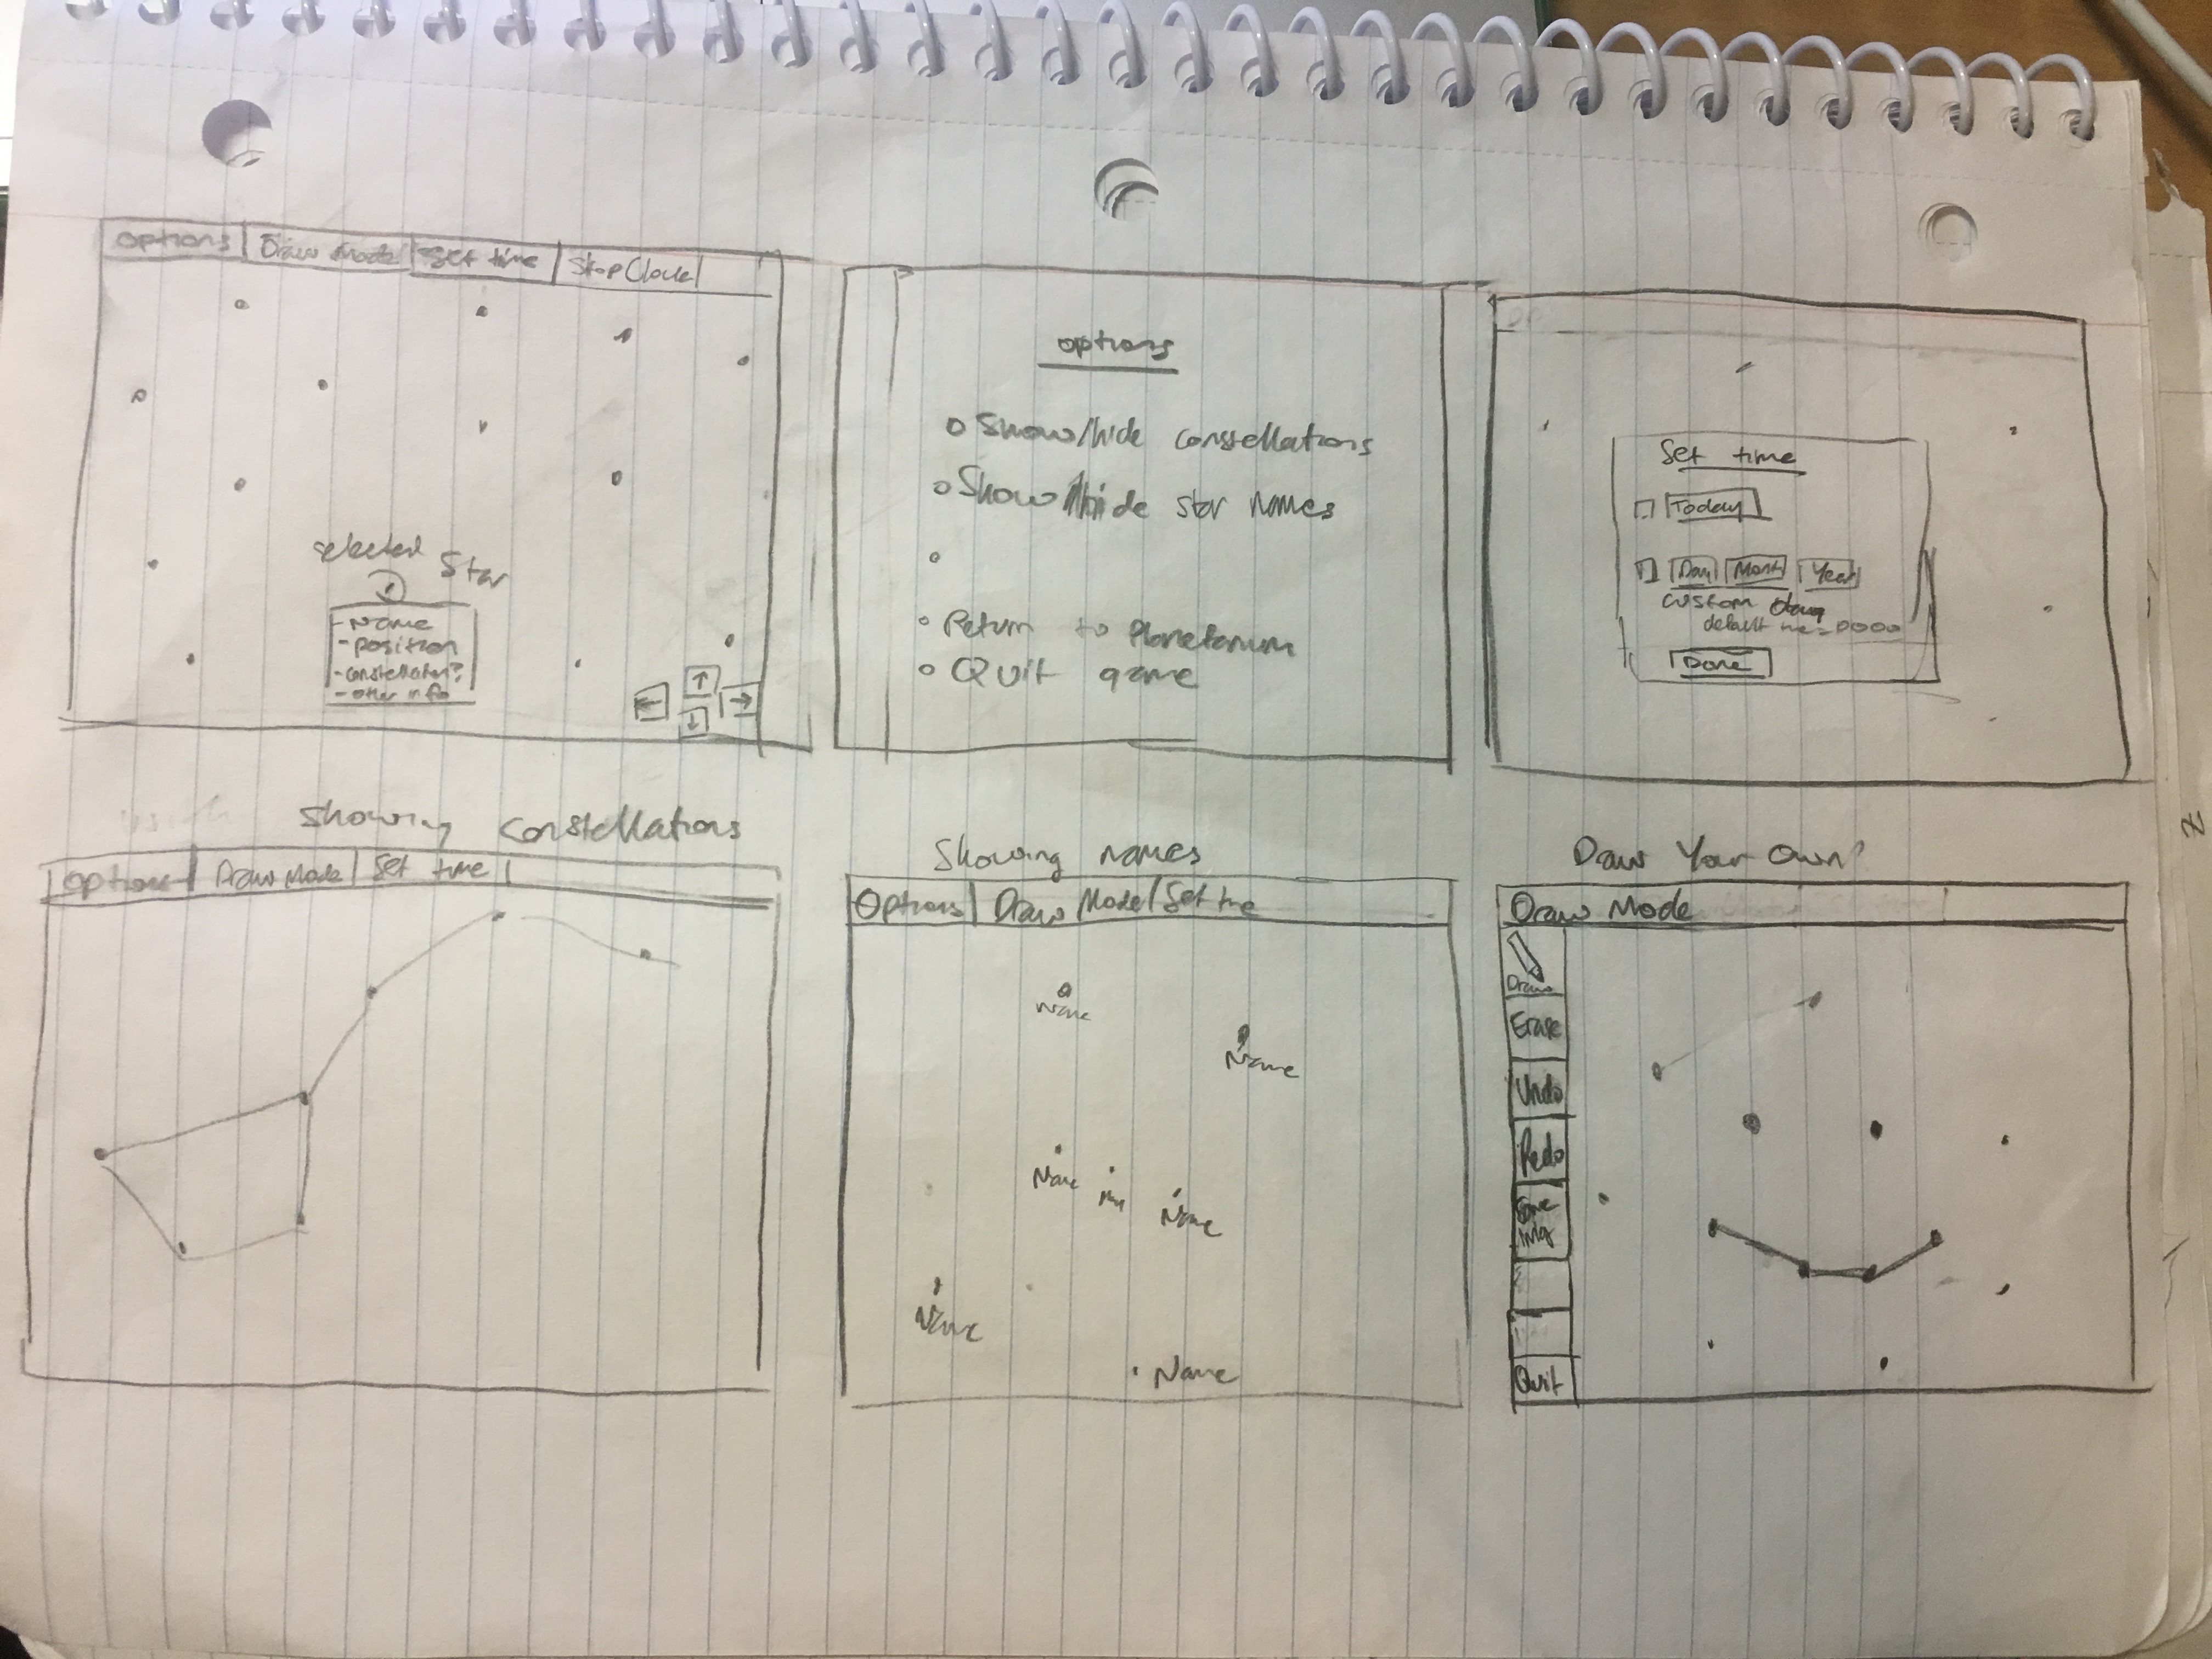 Options Draw Mode Set time Stop Clock
selected Star
- Name
- position
- constellation?
- other info
options
Show/hide constellations
Show/hide star names
Return to Planetarium
Quit game
Set time
Today
Day Month Year
custom
default time = 0000
Done
Showing constellations
Options Draw Mode Set time
Showing names
Options Draw Mode Set time
Name
Name
Name
Name
Name
Name
Draw Your Own?
Draw Mode
Draw
Erase
Undo
Redo
Save
img
Quit